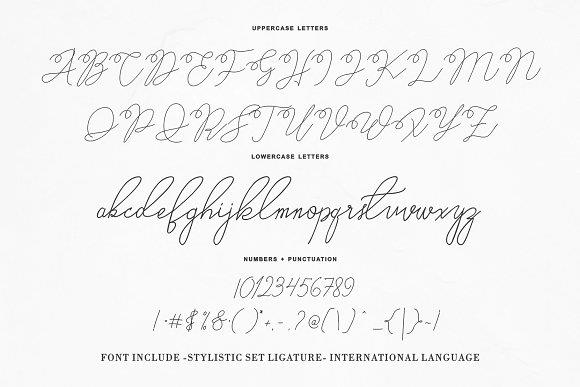 UPPERCASE LETTERS
ABCDEFGHIJKLMN
OPQRSTUVWXYZ
LOWERCASE LETTERS
abcdefghijklmnopqrstuvwxyz
NUMBERS + PUNCTUATION
10123456789
!·#$%&·()*+,-.?@[\]^_{|}~/
FONT INCLUDE -STYLISTIC SET LIGATURE- INTERNATIONAL LANGUAGE